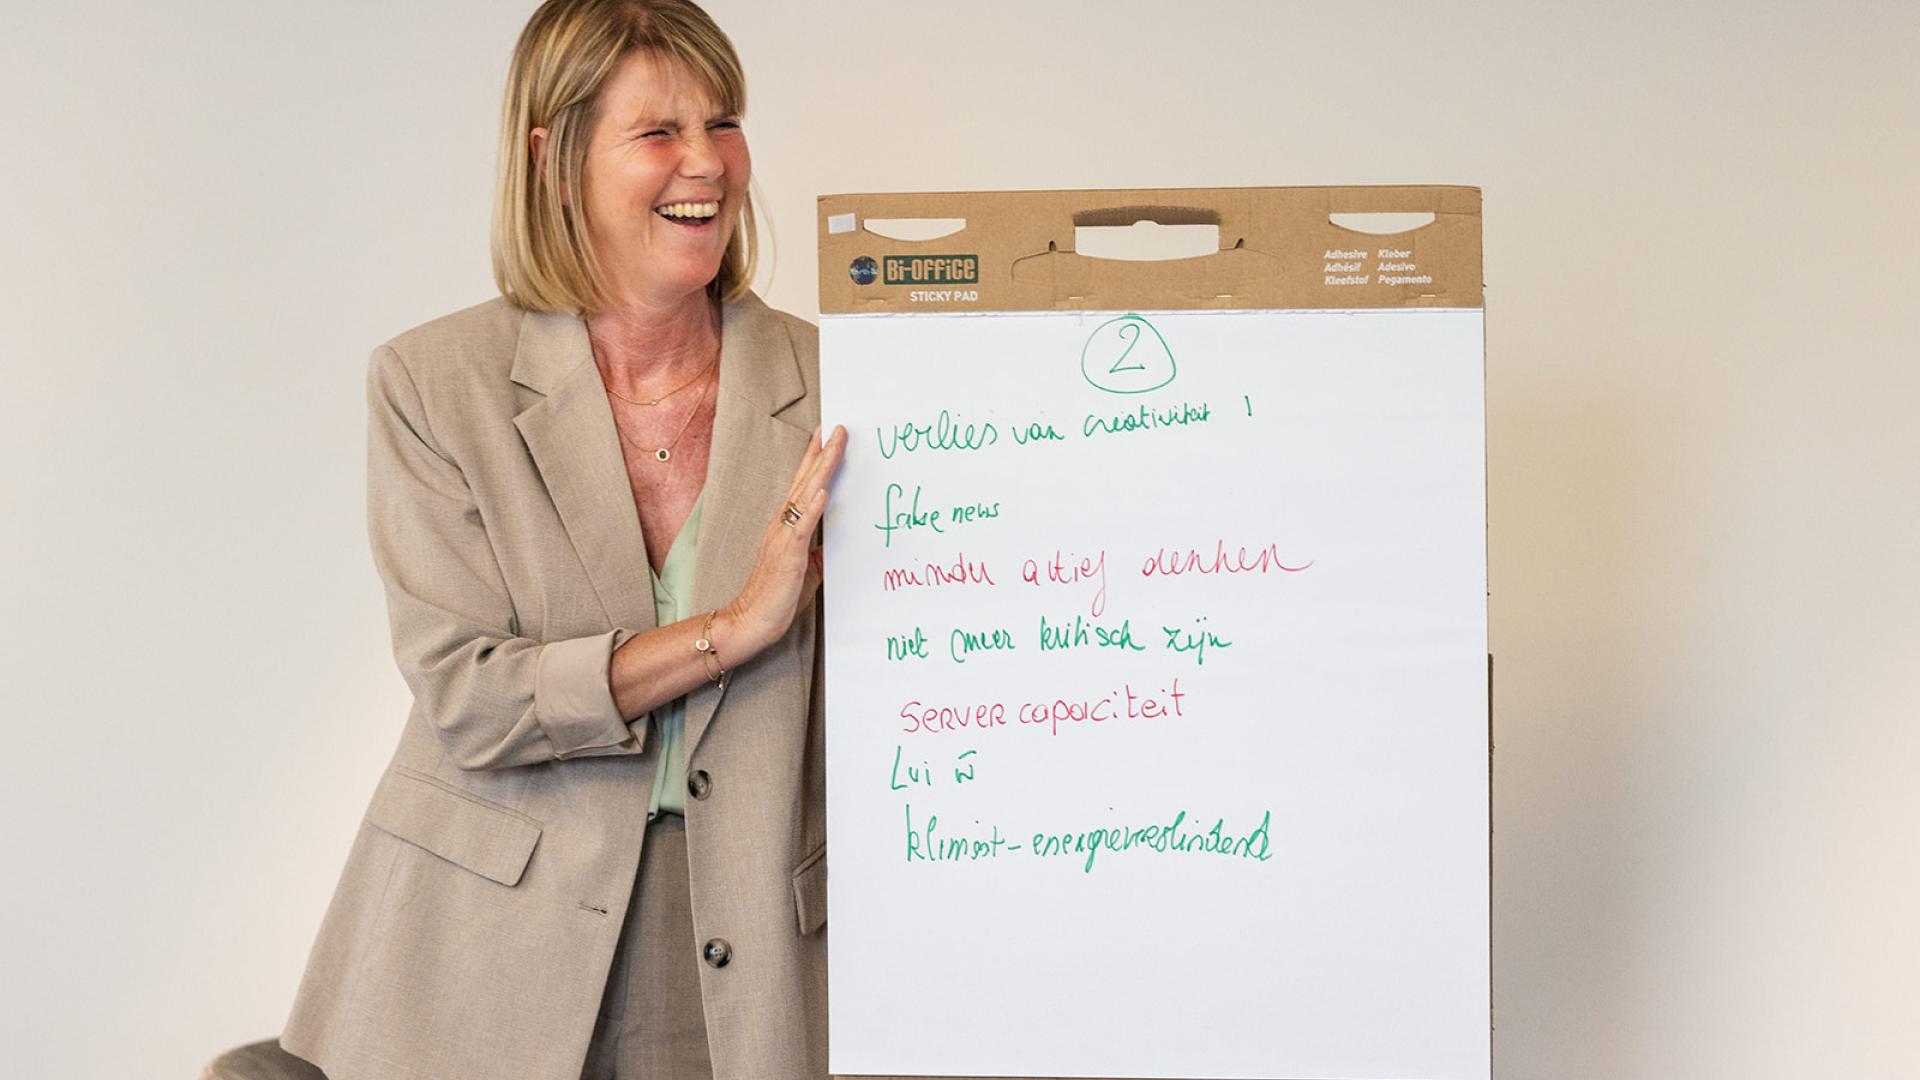 Bi-OFFiCE
STICKY PAD
Adhesive Kleber
Adhésif Adesivo
Kleefstof Pegamento
2
verlies van creativiteit !
fake news
minder actief denken
niet meer kritisch zijn
SERVER capaciteit
Lui w̄
klimaat-energieverslindend